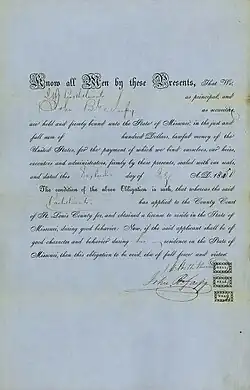 Know all Men by these Presents, That We
as principal, and
John as security
are held and firmly bound unto the State of Missouri, in the just and
full sum of hundred Dollars, lawful money of the
United States, for the payment of which we bind ourselves, our heirs,
executors and administrators, firmly by these presents, sealed with our seals,
and dated this day of A.D. 18
The condition of the above Obligation is such, that whereas the said
has applied to the County Court
of St. Louis County for, and obtained a license to reside in the State of
Missouri, during good behavior: Now, if the said applicant shall be of
good character and behavior during residence in the State of
Missouri, then this obligation to be void, else of full force and virtue.
SEAL
John
SEAL
SEAL